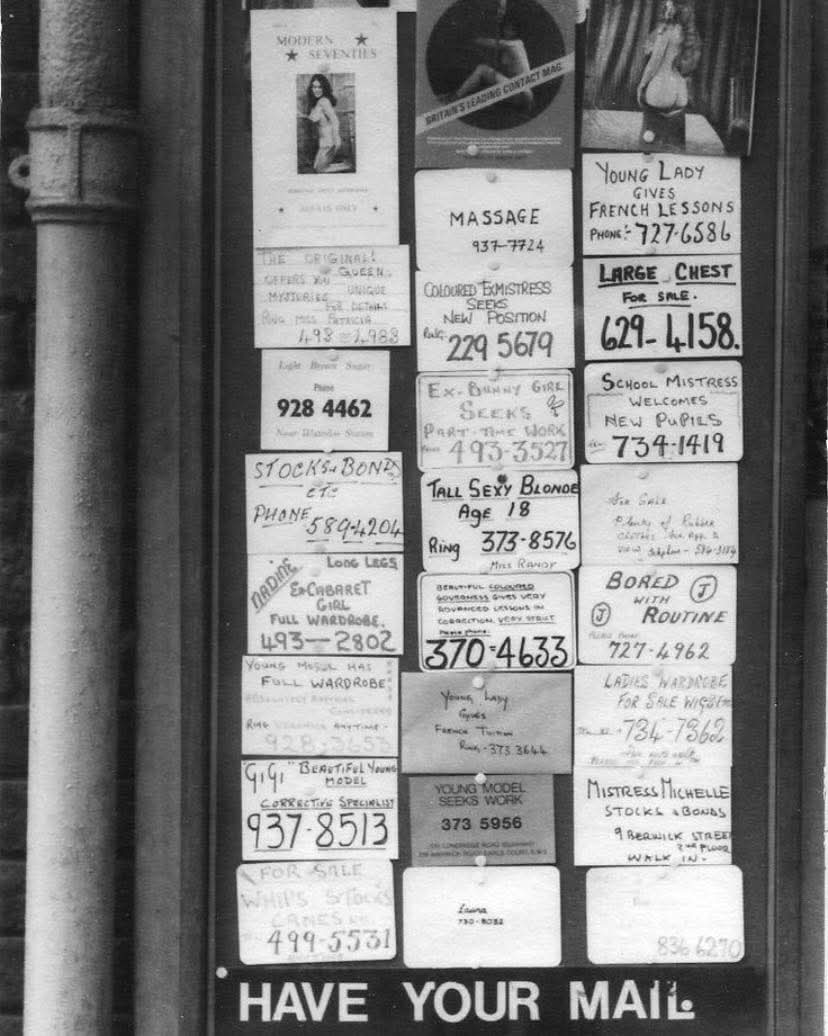 MODERN
SEVENTIES
ADULTS ONLY
THE ORIGINAL!
QUEEN.
OFFERS YOU
UNIQUE
MYSTERIES
FOR DETAILS
RING MISS PATRICIA
493-4983
Light Brown Sugar
Phone
928 4462
Near Waterloo Station
STOCKS & BONDS
ETC
PHONE
589-4204
NADINE
LONG LEGS
EX-CABARET
GIRL
FULL WARDROBE.
493-2802
YOUNG MODEL HAS
FULL WARDROBE
ABSOLUTELY ANYTHING
CONSIDERED
RING VERONICA ANYTIME.
928-3653
"GIGI" BEAUTIFUL YOUNG
MODEL
CORRECTIVE SPECIALIST
937-8513
FOR SALE
WHIPS STOCKS
CANES
499-5531
BRITAIN'S LEADING CONTACT MAG.
MASSAGE
937-7724
COLOURED EXMISTRESS
SEEKS
NEW POSITION
RING.
229 5679
EX-BUNNY GIRL
SEEKS
PART-TIME WORK
493-3527
TALL SEXY BLONDE
AGE 18
RING 373-8576
MISS RANDY
BEAUTIFUL COLOURED
GOVERNESS GIVES VERY
ADVANCED LESSONS IN
CORRECTION. VERY STRICT
Please phone:
370-4633
YOUNG LADY
GIVES
FRENCH TUITION
RING-373 3644
YOUNG MODEL
SEEKS WORK
373 5956
Laura
730-8032
YOUNG LADY
GIVES
FRENCH LESSONS
PHONE:- 727-6586
LARGE CHEST
FOR SALE.
629-4158.
SCHOOL MISTRESS
WELCOMES
NEW PUPILS
734-1419
For Sale
Plenty of Rubber
CLOTHES
BORED
WITH
ROUTINE
J
J
PLEASE PHONE
727-4962
LADIES WARDROBE
FOR SALE
734-7362
MISTRESS MICHELLE
STOCKS & BONDS
9 BERWICK STREET
2ND FLOOR
WALK IN.
836 6270
HAVE YOUR MAIL